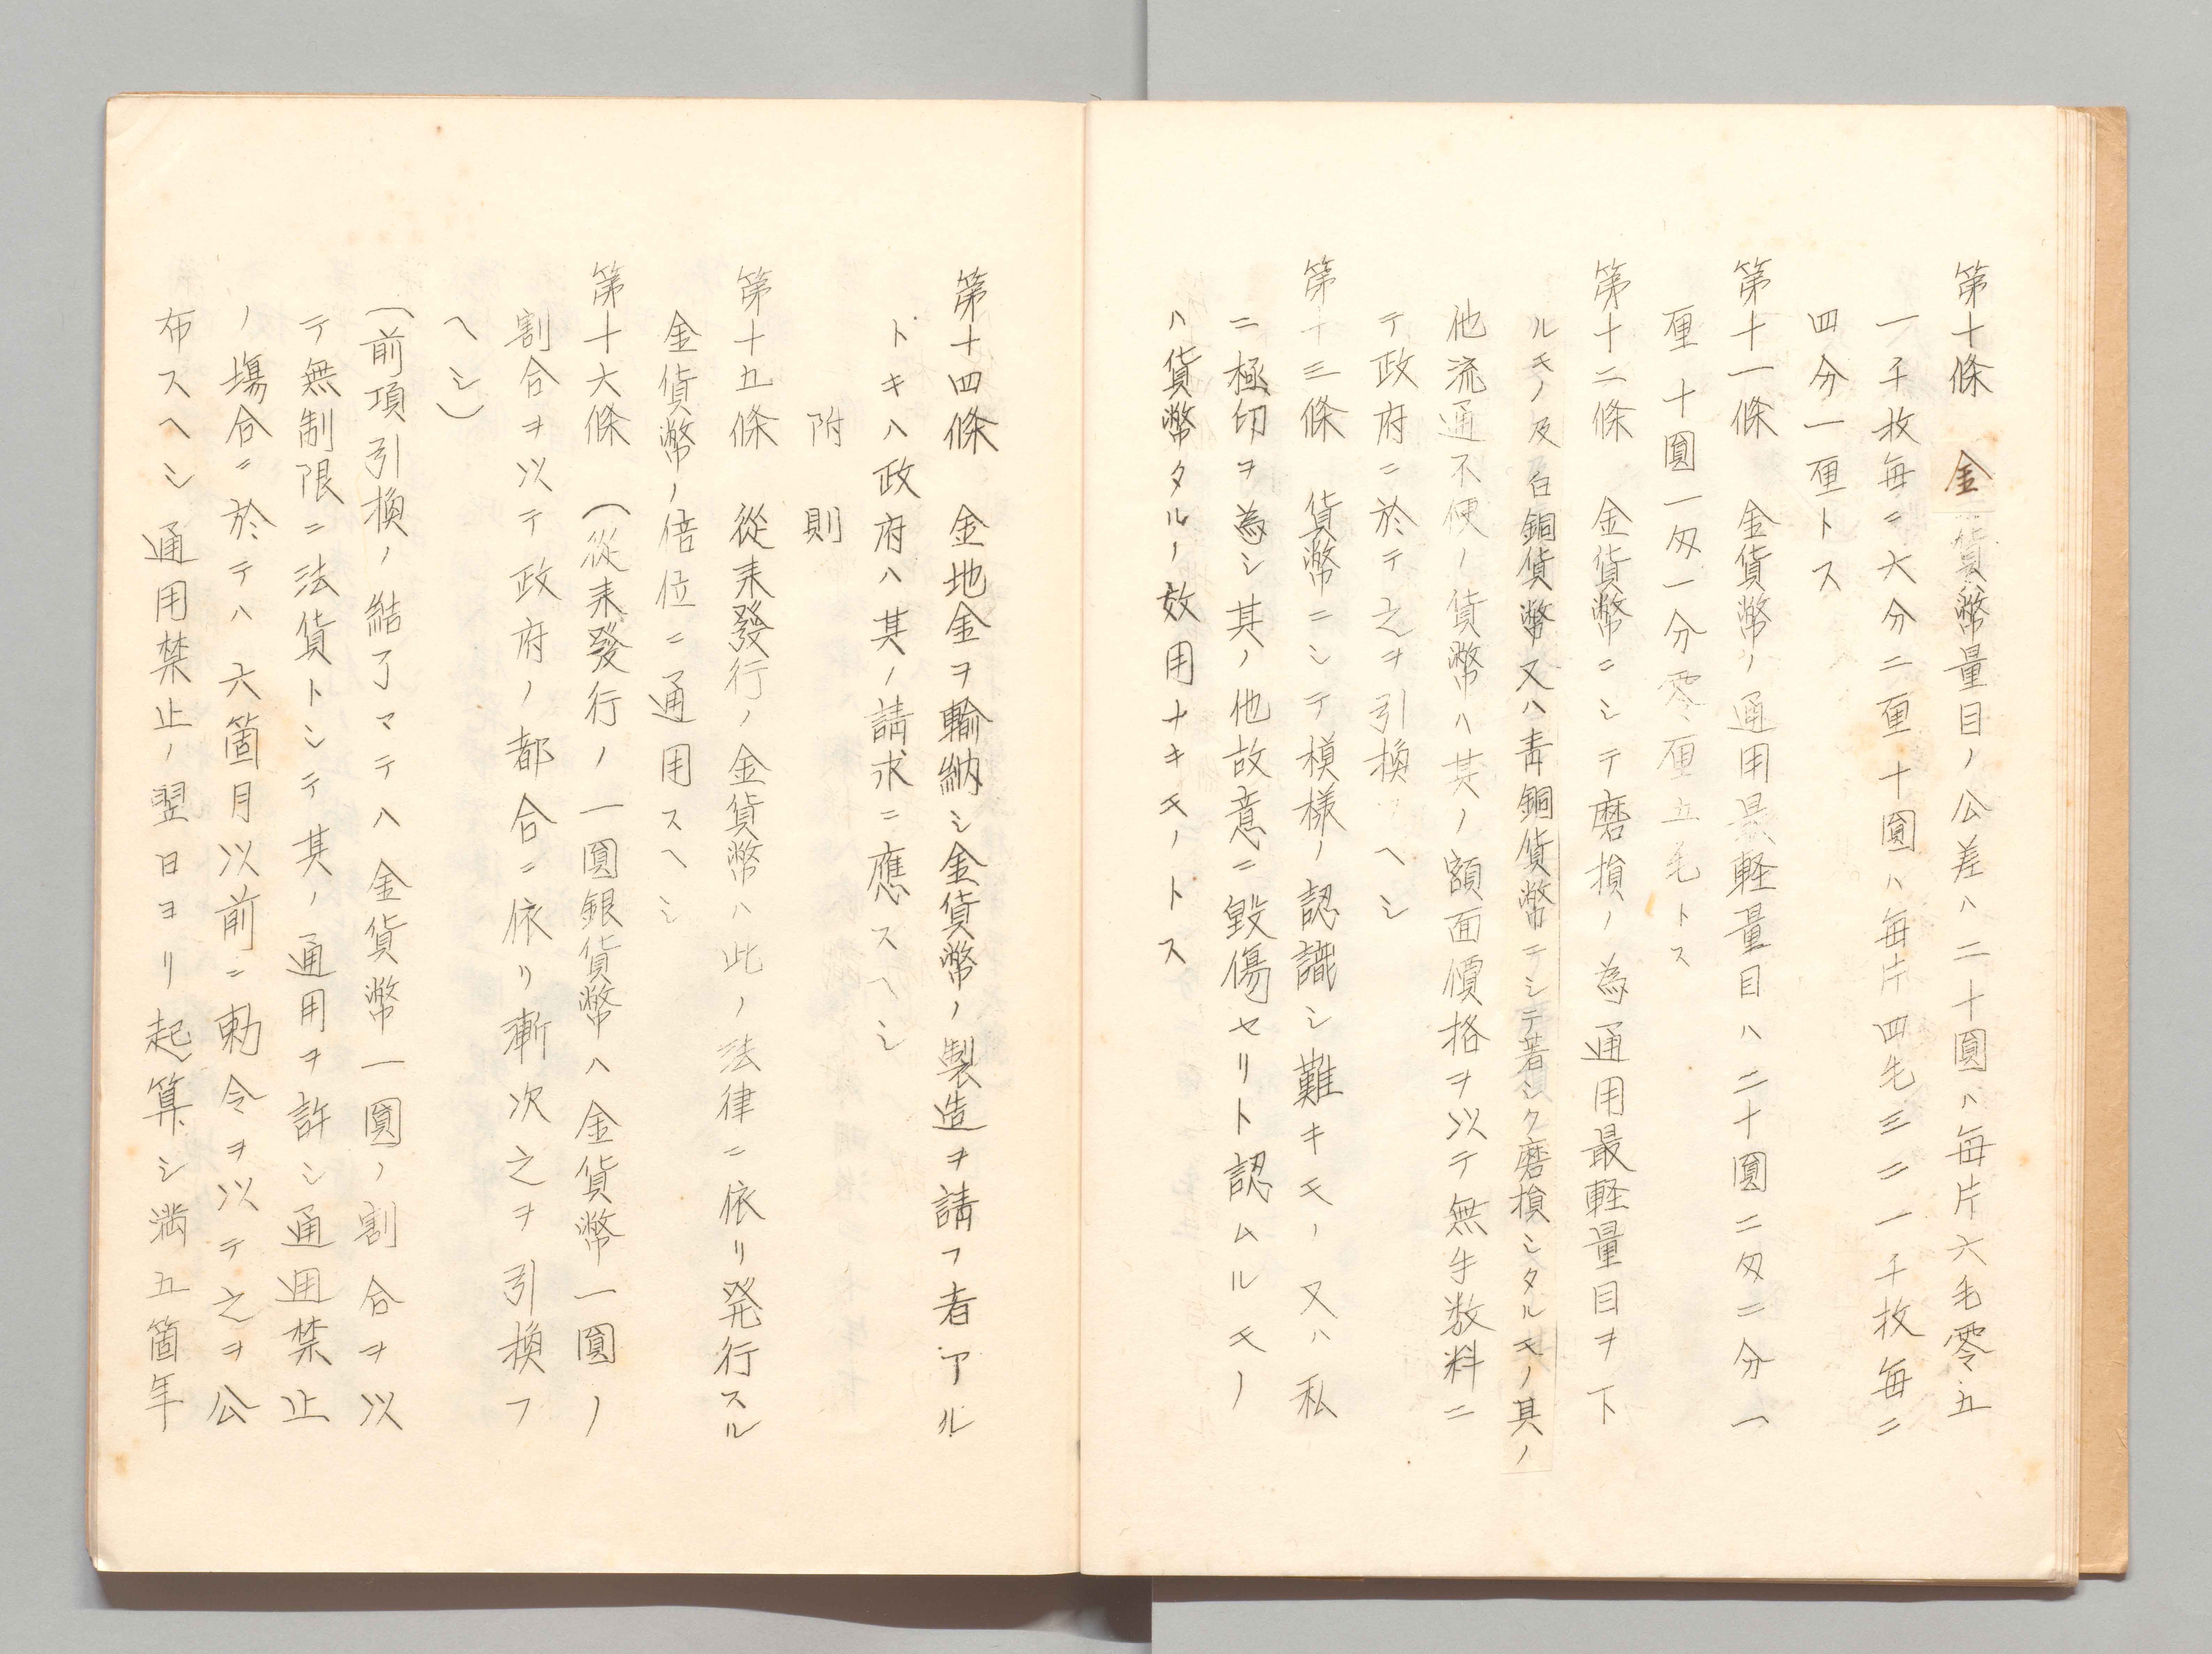 第十條　金貨幣量目ノ公差ハ二十圓ハ每片六毛零五
一千枚每ニ六分二厘十圓ハ每片四毛三二一千枚每ニ
四分一厘トス
第十一條　金貨幣ノ通用最軽量目ハ二十圓二匁二分一
厘十圓一匁一分零厘五毛トス
第十二條　金貨幣ニシテ磨損ノ為通用最軽量目ヲ下
ルモノ及白銅貨幣又ハ靑銅貨幣ニシテ著シク磨損シタルモノ其ノ
他流通不便ノ貨幣ハ其ノ額面價格ヲ以テ無手数料ニ
テ政府ニ於テ之ヲ引換ヘシ
第十三條　貨幣ニシテ模樣ノ認識シ難キモノ又ハ私
ニ極印ヲ為シ其ノ他故意ニ毀傷セリト認ムルモノ
ハ貨幣タルノ效用ナキモノトス
第十四條　金地金ヲ輸納シ金貨幣ノ製造ヲ請フ者アル
トキハ政府ハ其ノ請求ニ應スヘシ
附則
第十五條　從来發行ノ金貨幣ハ此ノ法律ニ依リ発行スル
金貨幣ノ倍位ニ通用スヘシ
第十六條　(從来發行ノ一圓銀貨幣ハ金貨幣一圓ノ
割合ヲ以テ政府ノ都合ニ依リ漸次之ヲ引換フ
ヘシ)
(前項引換ノ結了マテハ金貨幣一圓ノ割合ヲ以
テ無制限ニ法貨トシテ其ノ通用ヲ許シ通用禁止
ノ塲合ニ於テハ六箇月以前ニ勅令ヲ以テ之ヲ公
布スヘシ通用禁止ノ翌日ヨリ起算シ満五箇年